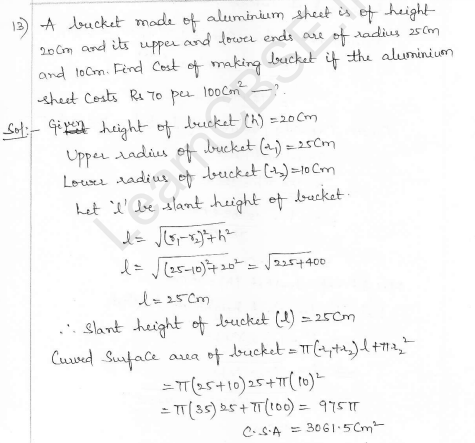 13) A bucket made of aluminium sheet is of height
20cm and its upper and lower ends are of radius 25cm
and 10cm. Find cost of making bucket if the aluminium
sheet costs Rs 70 per 100cm² —?
Sol:- Given height of bucket (h) = 20cm
Upper radius of bucket (r₁) = 25cm
Lower radius of bucket (r₂) = 10cm
Let 'l' be slant height of bucket.
l = √(r₁-r₂)²+h²
l = √(25-10)²+20² = √225+400
l = 25cm
∴ Slant height of bucket (l) = 25cm
Curved Surface area of bucket = π(r₁+r₂)l+πr₂²
= π(25+10)25+π(10)²
= π(35)25+π(100) = 975π
C.S.A = 3061.5cm²